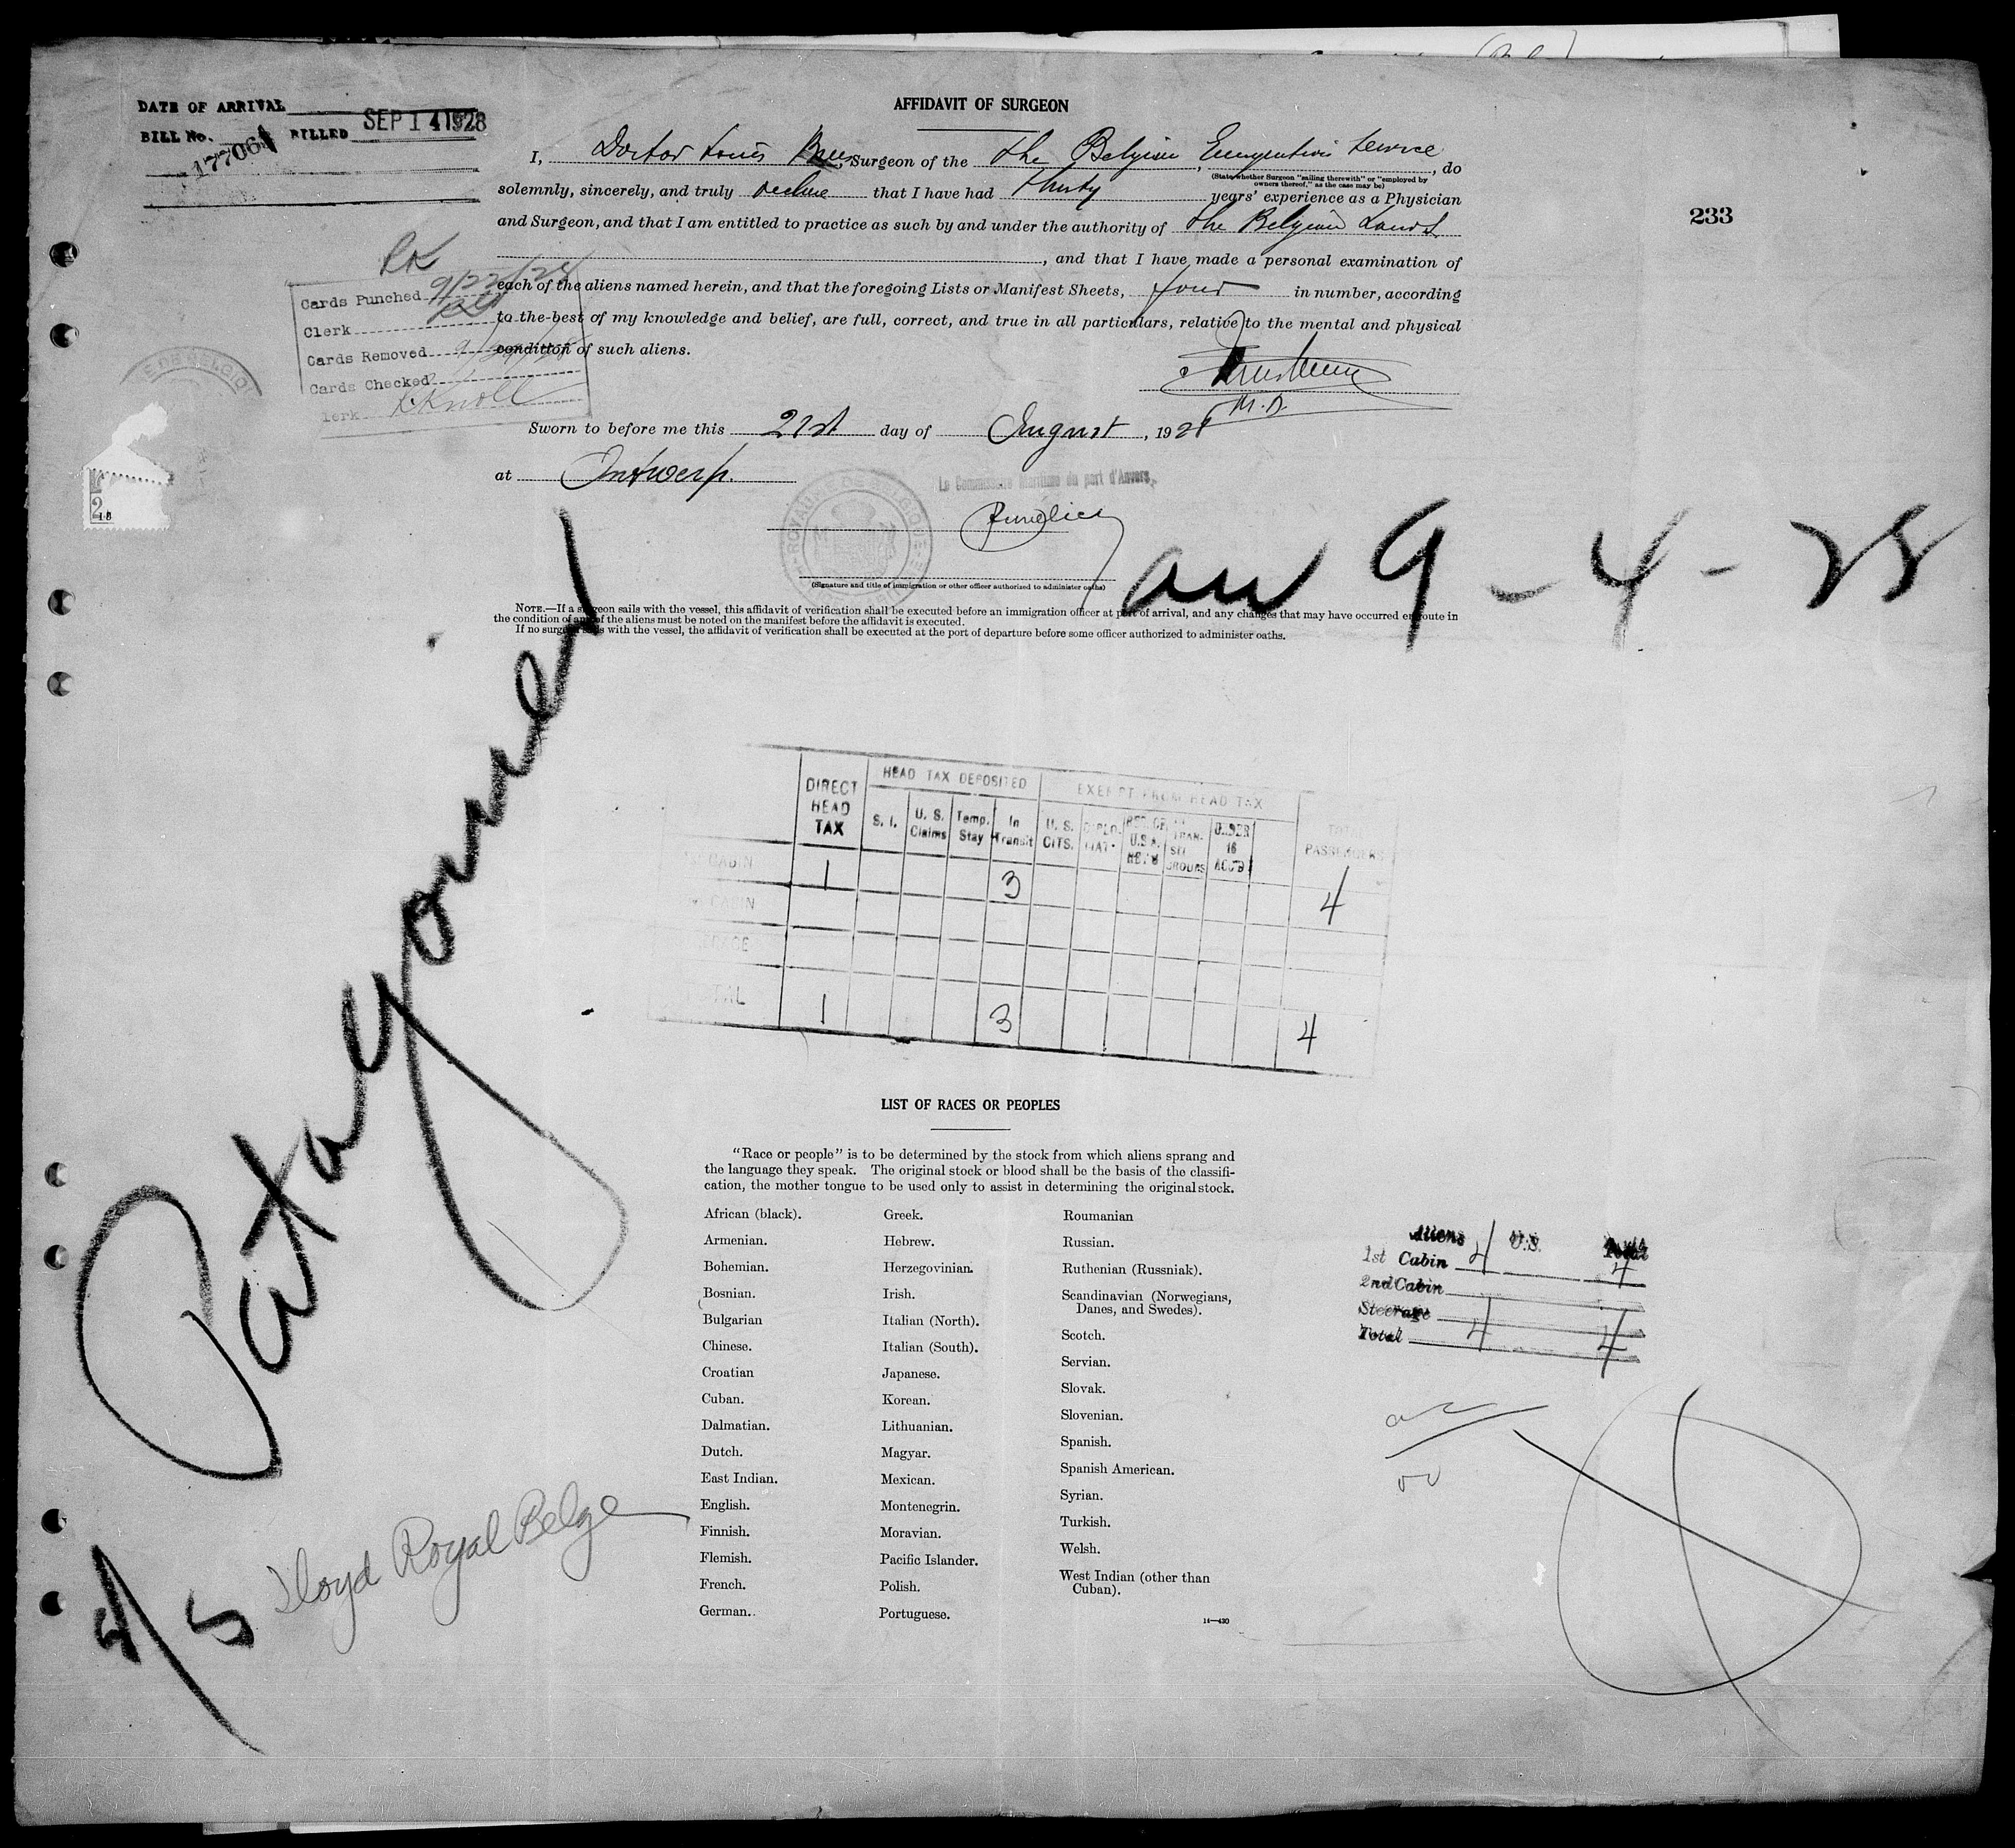 DATE OF ARRIVAL
BILL No. 17706 BILLED SEP 14 1928
AFFIDAVIT OF SURGEON
I, Doctor Louis, Surgeon of the The Belgian Emigration Service, do
(State whether Surgeon "sailing therewith" or "employed by
owners thereof," as the case may be)
solemnly, sincerely, and truly declare that I have had thirty years' experience as a Physician
and Surgeon, and that I am entitled to practice as such by and under the authority of the Belgian Laws
, and that I have made a personal examination of
each of the aliens named herein, and that the foregoing Lists or Manifest Sheets, four in number, according
to the best of my knowledge and belief, are full, correct, and true in all particulars, relative to the mental and physical
condition of such aliens.
M.D.
Sworn to before me this 21st day of August, 1928
at Antwerp.
Le Commissaire Maritime du port d'Anvers,
ROYAUME DE BELGIQUE
(Signature and title of immigration or other officer authorized to administer oaths)
NOTE.—If a surgeon sails with the vessel, this affidavit of verification shall be executed before an immigration officer at port of arrival, and any changes that may have occurred en route in
the condition of any of the aliens must be noted on the manifest before the affidavit is executed.
If no surgeon sails with the vessel, the affidavit of verification shall be executed at the port of departure before some officer authorized to administer oaths.
233
Cards Punched 9/22/28
Clerk
Cards Removed
Cards Checked
Clerk Knoll
DE BELGIQ
9-4-28
DIRECT HEAD TAX
HEAD TAX DEPOSITED
EXEMPT FROM HEAD TAX
TOTAL PASSENGERS
S. I.
U. S. Claims
Temp. Stay
In Transit
U. S. CITS.
DIPLO-MAT
UNDER 16 ACC'D
1st CABIN 1 3 4
2nd CABIN
STEERAGE
TOTAL 1 3 4
LIST OF RACES OR PEOPLES
"Race or people" is to be determined by the stock from which aliens sprang and
the language they speak. The original stock or blood shall be the basis of the classifi-
cation, the mother tongue to be used only to assist in determining the original stock.
African (black).
Armenian.
Bohemian.
Bosnian.
Bulgarian
Chinese.
Croatian
Cuban.
Dalmatian.
Dutch.
East Indian.
English.
Finnish.
Flemish.
French.
German.
Greek.
Hebrew.
Herzegovinian.
Irish.
Italian (North).
Italian (South).
Japanese.
Korean.
Lithuanian.
Magyar.
Mexican.
Montenegrin.
Moravian.
Pacific Islander.
Polish.
Portuguese.
Roumanian
Russian.
Ruthenian (Russniak).
Scandinavian (Norwegians,
Danes, and Swedes).
Scotch.
Servian.
Slovak.
Slovenian.
Spanish.
Spanish American.
Syrian.
Turkish.
Welsh.
West Indian (other than
Cuban).
14—430
Aliens U.S. Total
1st Cabin 4 4
2nd Cabin
Steerage
Total 4 4
Patagonier
S/S
Lloyd Royal Belge